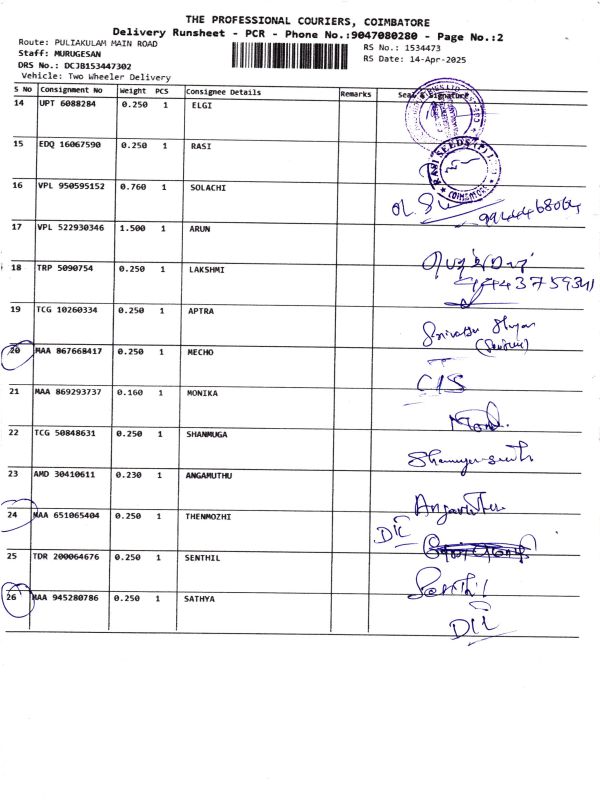 THE PROFESSIONAL COURIERS, COIMBATORE
Delivery Runsheet - PCR - Phone No.:9047080280 - Page No.:2
Route: PULIAKULAM MAIN ROAD
Staff: MURUGESAN
DRS No.: DCJB153447302
Vehicle: Two Wheeler Delivery
RS No.: 1534473
RS Date: 14-Apr-2025
S No Consignment No Weight PCS Consignee Details Remarks Seal & Signature
14 UPT 6088284 0.250 1 ELGI
15 EDQ 16067590 0.250 1 RASI RASI SEEDS (P) COIMBATORE
16 VPL 950595152 0.760 1 SOLACHI
17 VPL 522930346 1.500 1 ARUN
18 TRP 5090754 0.250 1 LAKSHMI
19 TCG 10260334 0.250 1 APTRA
20 MAA 867668417 0.250 1 MECHO
21 MAA 869293737 0.160 1 MONIKA
22 TCG 50848631 0.250 1 SHANMUGA
23 AMD 30410611 0.230 1 ANGAMUTHU
24 MAA 651065404 0.250 1 THENMOZHI
25 TDR 200064676 0.250 1 SENTHIL Senthil
26 MAA 945280786 0.250 1 SATHYA